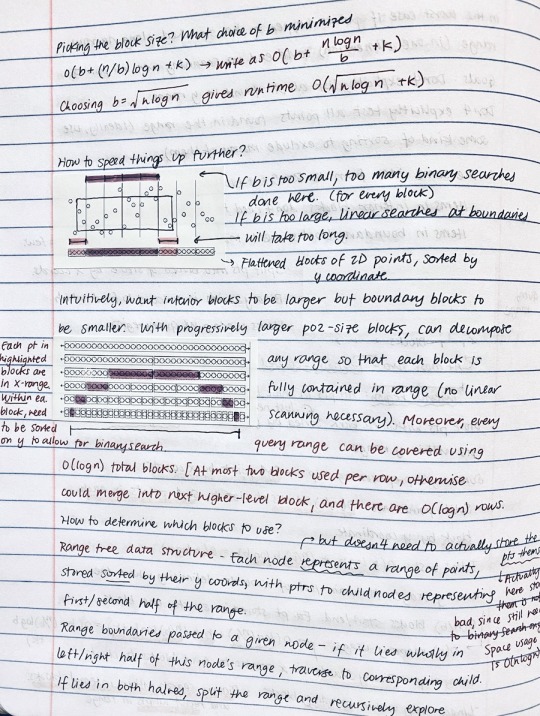 Picking the block size? What choice of b minimizes
O(b + (n/b) log n + k) → write as O(b + n log n / b + k)
Choosing b = √n log n gives runtime O(√n log n + k)
How to speed things up further?
If b is too small, too many binary searches
done here. (for every block)
If b is too large, linear searches at boundaries
will take too long.
→ Flattened blocks of 2D points, sorted by
y coordinate.
Intuitively, want interior blocks to be larger but boundary blocks to
be smaller. With progressively larger po2-size blocks, can decompose
any range so that each block is
fully contained in range (no linear
scanning necessary). Moreover, every
query range can be covered using
Each pt in
highlighted
blocks are
in x-range.
Within ea.
block, need
to be sorted
on y to allow for binary search.
O(log n) total blocks. [At most two blocks used per row, otherwise
could merge into next higher-level block, and there are O(log n) rows.
How to determine which blocks to use?
but doesn't need to actually store the
pts
Range tree data structure - Each node represents a range of points,
stored sorted by their y coords, with ptrs to child nodes representing
first/second half of the range.
Actually
here
bad, since still
to binary search
Space usage
is O(n log n)
Range boundaries passed to a given node - if it lies wholly in
left/right half of this node's range, traverse to corresponding child.
If lies in both halves, split the range and recursively explore